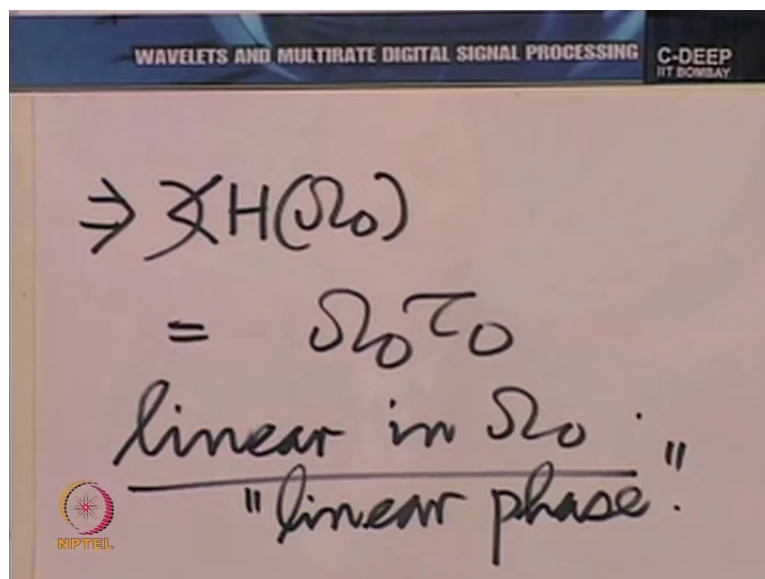 WAVELETS AND MULTIRATE DIGITAL SIGNAL PROCESSING
C-DEEP
IIT BOMBAY
⇒ ∢H(Ω₀)
= Ω₀τ₀
linear in Ω₀.
"linear phase."
NPTEL